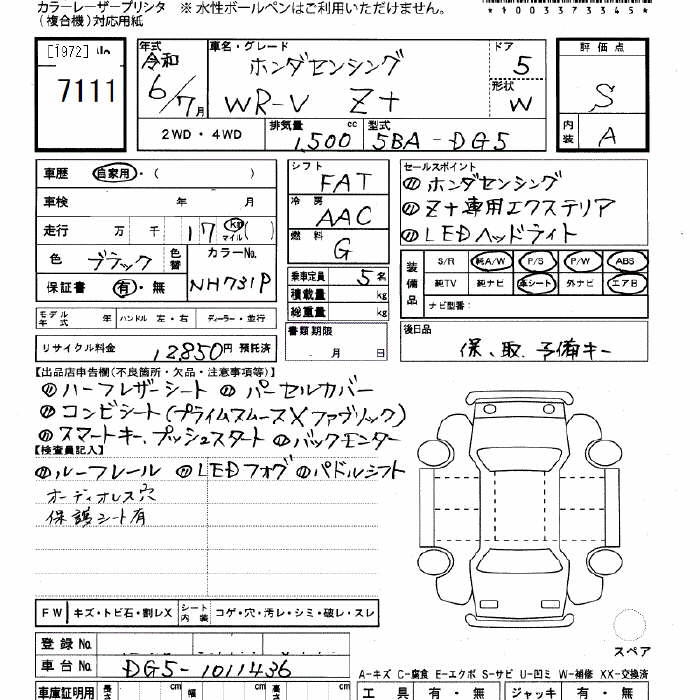 カラーレーザープリンタ ※ 水性ボールペンはご利用いただけません。
(複合機)対応用紙
*1003733345*
[1972]
7111
年式 車名・グレード ドア 評価点
令和 ホンダセンシング 5
6/7月 WR-V Z+ 形状 W S
2WD・4WD 排気量 1,500 cc 型式 5BA-DG5 内装 A
車歴 自家用・( ) シフト FAT セールスポイント
車検 年 月 冷房 AAC ㋷ホンダセンシング
走行 万 千 17 Km マイル ( ) 燃料 G ㋷Z+専用エクステリア
㋷LEDヘッドライト
色 ブラック 色替 カラーNo. NH731P 乗車定員 5名 装備品 S/R 純A/W P/S P/W ABS
保証書 有・無 積載量 kg 純TV 純ナビ 革シート 外ナビ エアB
総重量 kg ナビ型番:
モデル年式 年 ハンドル 左・右 ディーラー・並行 書類期限 後日品
リサイクル料金 12,850円 預託済 月 日 保、取、予備キー
【出品店申告欄(不良箇所・欠品・注意事項等)】
㋷ハーフレザーシート ㋷パーセルカバー
㋷コンビシート(プライムスムースXファヴリック)
㋷スマートキー、プッシュスタート ㋷バックモンター
【検査員記入】
㋷ルーフレール ㋷LEDフォグ ㋷パドルシフト
オーディオレス穴
保護シート有
FW キズ・トビ石・割レX シート内装 コゲ・穴・汚レ・シミ・破レ・スレ
スペア
登録No.
車台No. DG5-1011436
A-キズ C-腐食 E-エクボ S-サビ U-凹ミ W-補修 XX-交換済
車庫証明用 長さ cm 幅 cm 高さ cm 工具 有・無 ジャッキ 有・無